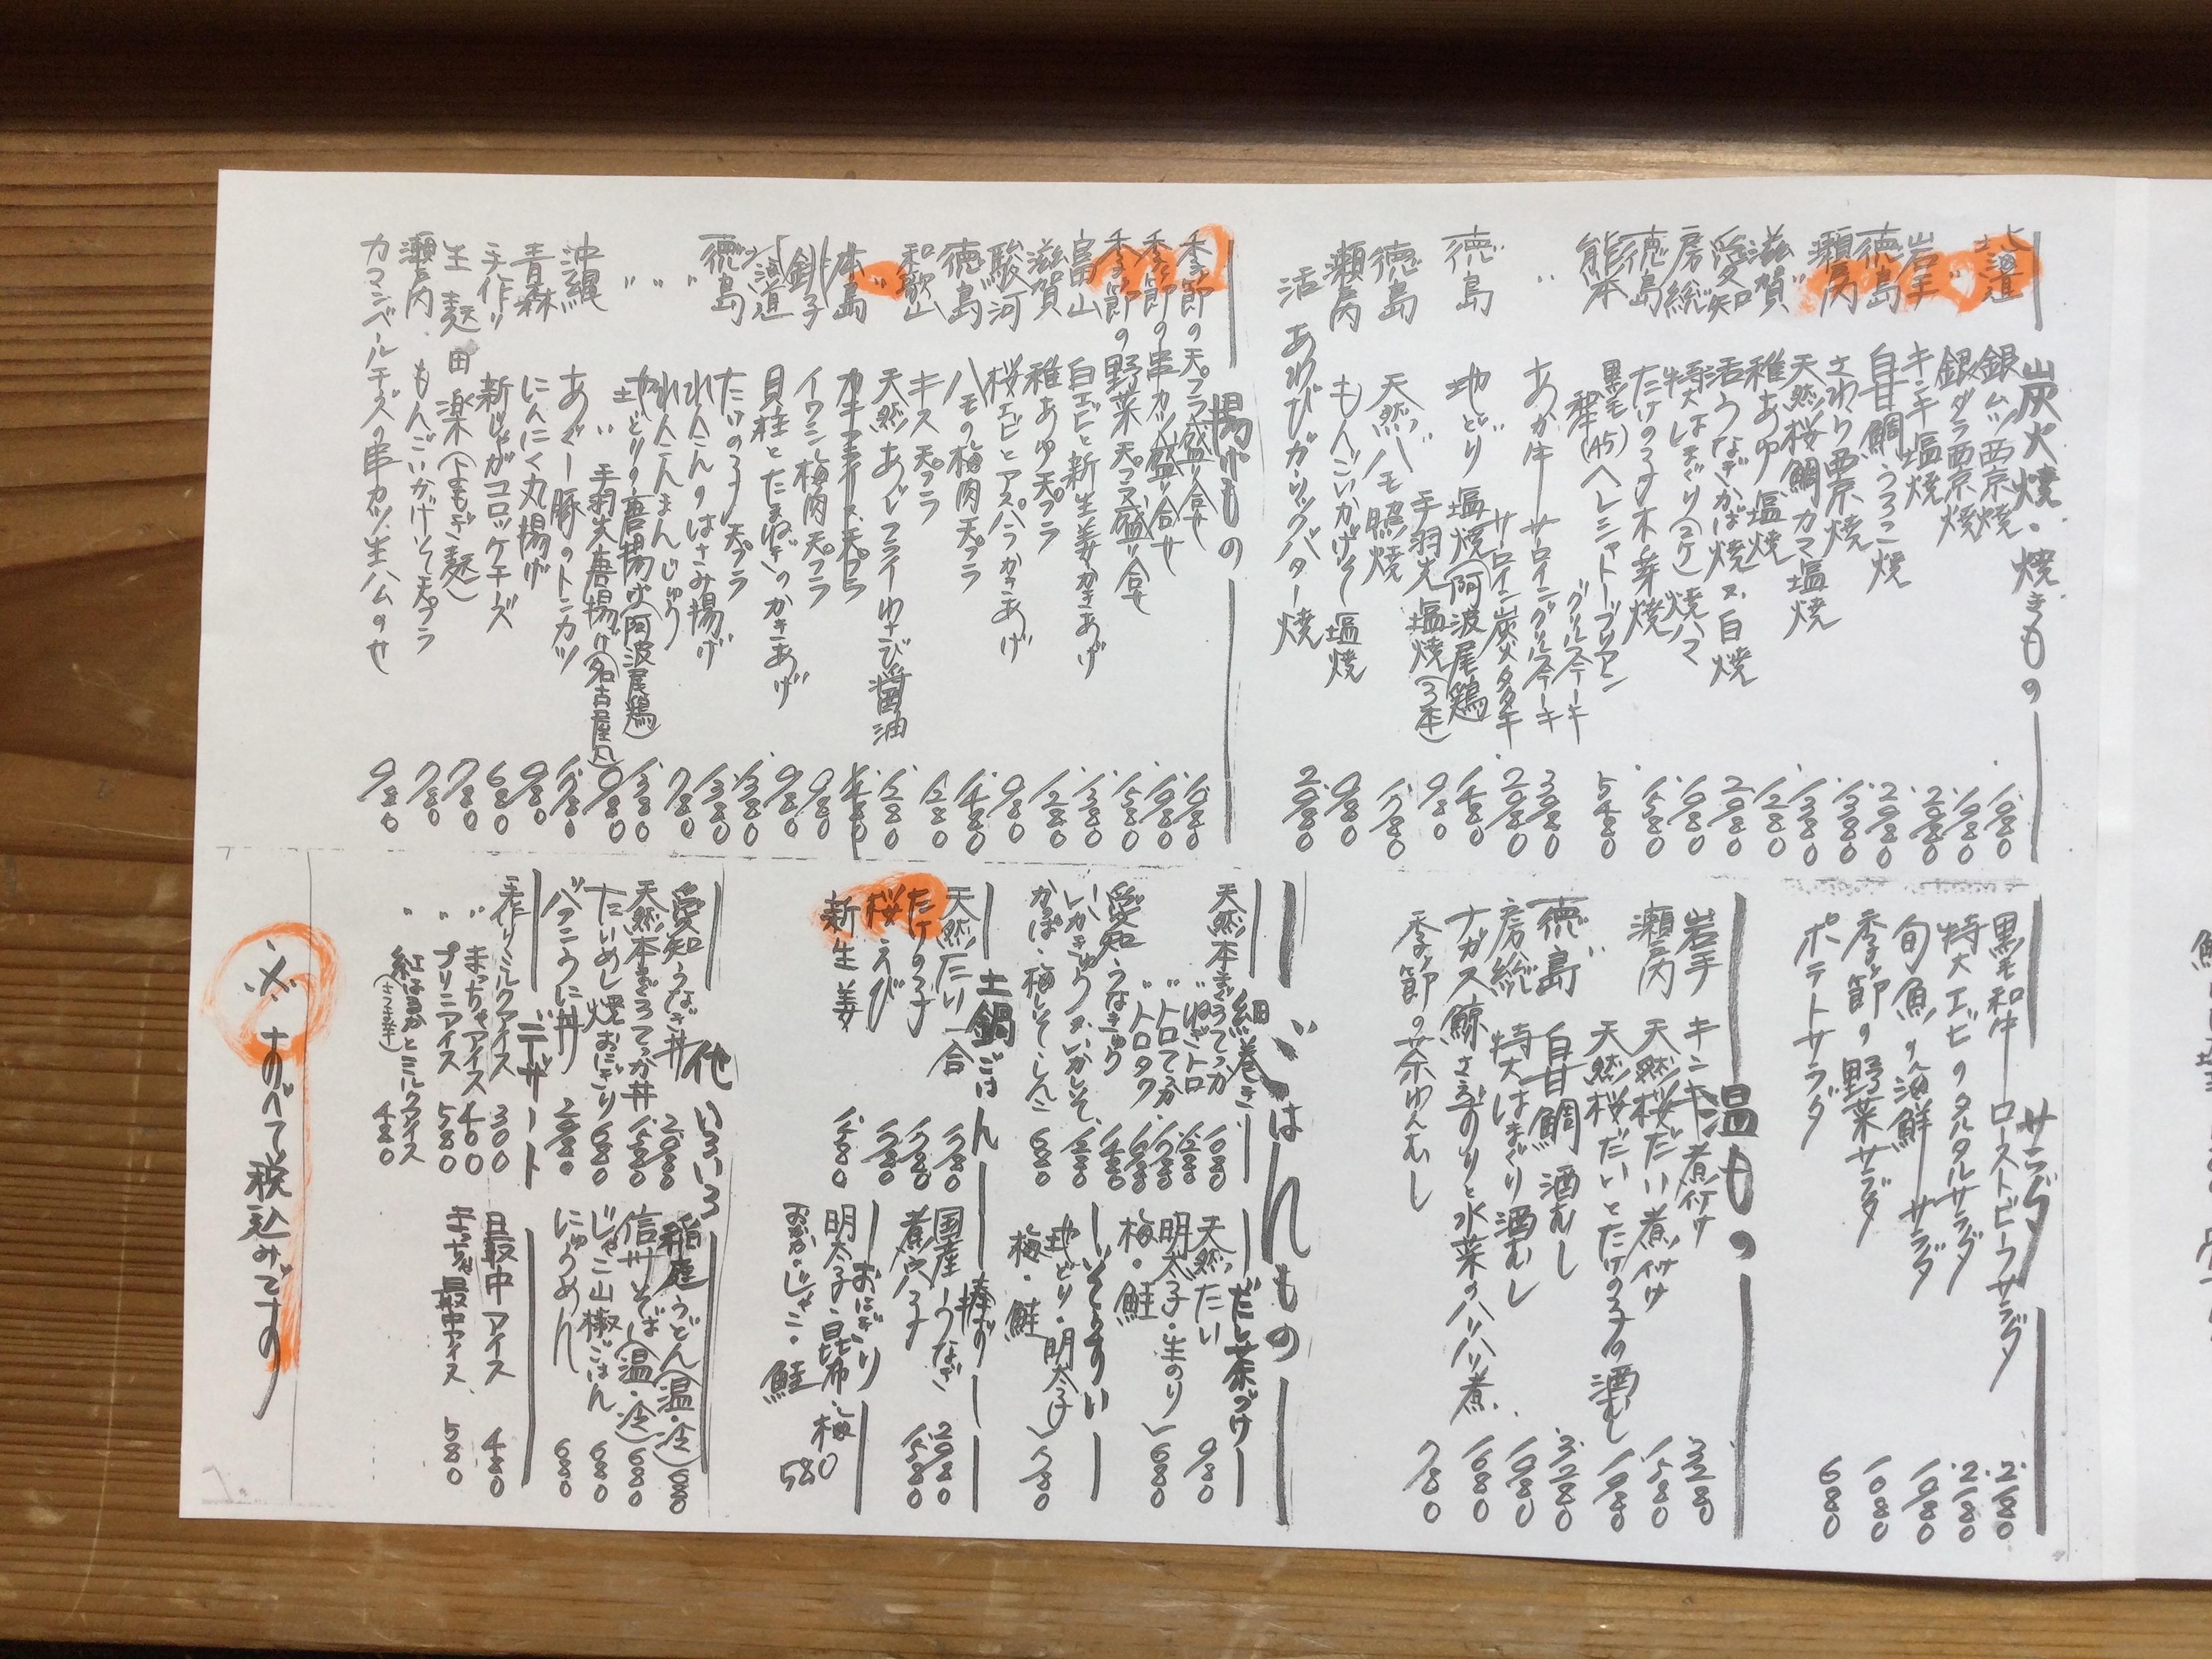 炭火焼・焼きもの
北海道 銀ムツ西京焼 1,980
〃 銀ダラ西京焼 1,980
岩手 キンキ塩焼
徳島 白甘鯛うろこ焼 2,980
〃 さわら西京焼 1,380
瀬戸内 天然桜鯛カマ塩焼 1,380
滋賀 稚あゆ塩焼 1,280
愛知 活うなぎかば焼 又、白焼 2,980
房総 特大はまぐり(2ケ)焼ハマ 1,980
徳島 たけのこ木の芽焼 1,580
熊本 黒毛和牛(A5)ヘレシャトーブリアン
グリルステーキ 5,480
〃 あか牛 サーロイングリルステーキ 3,980
サーロイン炭火タタキ 2,980
徳島 地どり 塩焼(阿波尾鶏) 1,480
〃 手羽先塩焼(3本) 980
徳島 天然ハモ照焼 1,780
瀬戸内 もんごいかげそ塩焼 980
活 あわびガーリックバター焼 2,980
揚げもの
季節の天プラ盛り合せ 1,980
季節の串カツ盛り合せ 1,980
季節の野菜天プラ盛り合せ 1,580
富山 白エビと新生姜かきあげ 1,380
滋賀 稚あゆ天プラ 1,280
駿河 桜エビとアスパラかきあげ 980
徳島 ハモの梅肉天プラ 1,480
和歌山 キス天プラ 1,280
〃 天然あじフライわさび醤油 1,280
銚子 イワシ梅肉天プラ 980
北海道 貝柱とたまねぎのかきあげ 980
徳島 たけのこ天プラ 1,380
〃 れんこんのはさみ揚げ 1,380
〃 れんこんまんじゅう 780
〃 地どりの唐揚げ(阿波尾鶏) 1,380
〃 手羽先唐揚げ(名古屋風) 980
沖縄 あぐー豚のトンカツ 1,780
青森 にんにく丸揚げ 980
手作り 新じゃがコロッケチーズ 680
生麩田楽(よもぎ麩) 780
瀬戸内 もんごいかげそ天プラ 780
カマンベールチーズの串カツ、生ハムのせ 980
サラダ
黒毛和牛ローストビーフサラダ 2,180
特大エビのタルタルサラダ 2,180
旬魚の海鮮サラダ 1,980
季節の野菜サラダ 1,080
ポテトサラダ 680
温もの
岩手 キンキ煮付け 3,280
瀬戸内 天然桜だい煮付け 1,580
〃 天然桜だいとたけのこの酒むし 1,980
徳島 白甘鯛 酒むし 3,280
房総 特大はまぐり酒むし 1,980
ナガス鯨さえずりと水菜のハリハリ煮 1,680
季節の茶わんむし 780
ごはんもの
細巻き
天然本まぐろてっか 1,980
〃 ねぎトロ 1,280
〃 トロてっか 1,780
〃 トロタク 1,680
愛知 うなきゅう 1,480
いかきゅう又、いかしそ 1,280
かっぱ・梅しそ・しんこ 680
だし茶づけ
天然たい 980
明太子・生のり
梅・鮭 680
ぞうすい
地どり・明太子
梅・鮭 780
土鍋ごはん
天然たい 一合 1,780
たけのこ 1,780
桜えび 1,780
新生姜 1,480
棒ずし
国産うなぎ 2,980
煮穴子 1,580
おにぎり
明太子・昆布・梅
おかか・じゃこ・鮭 580
他いろいろ
愛知うなぎ丼 2,980
天然本まぐろてっか丼 1,580
たいめし焼おにぎり 680
バフンうに丼 2,980
稲庭うどん(温・冷) 680
信州そば(温・冷) 680
じゃこ山椒ごはん 680
にゅうめん 680
デザート
手作り ミルクアイス 300
〃 まっちゃアイス 400
〃 プリンアイス 580
紅はるかとミルクアイス 480
最中アイス 480
まっちゃ最中アイス 580
※ すべて税込みです